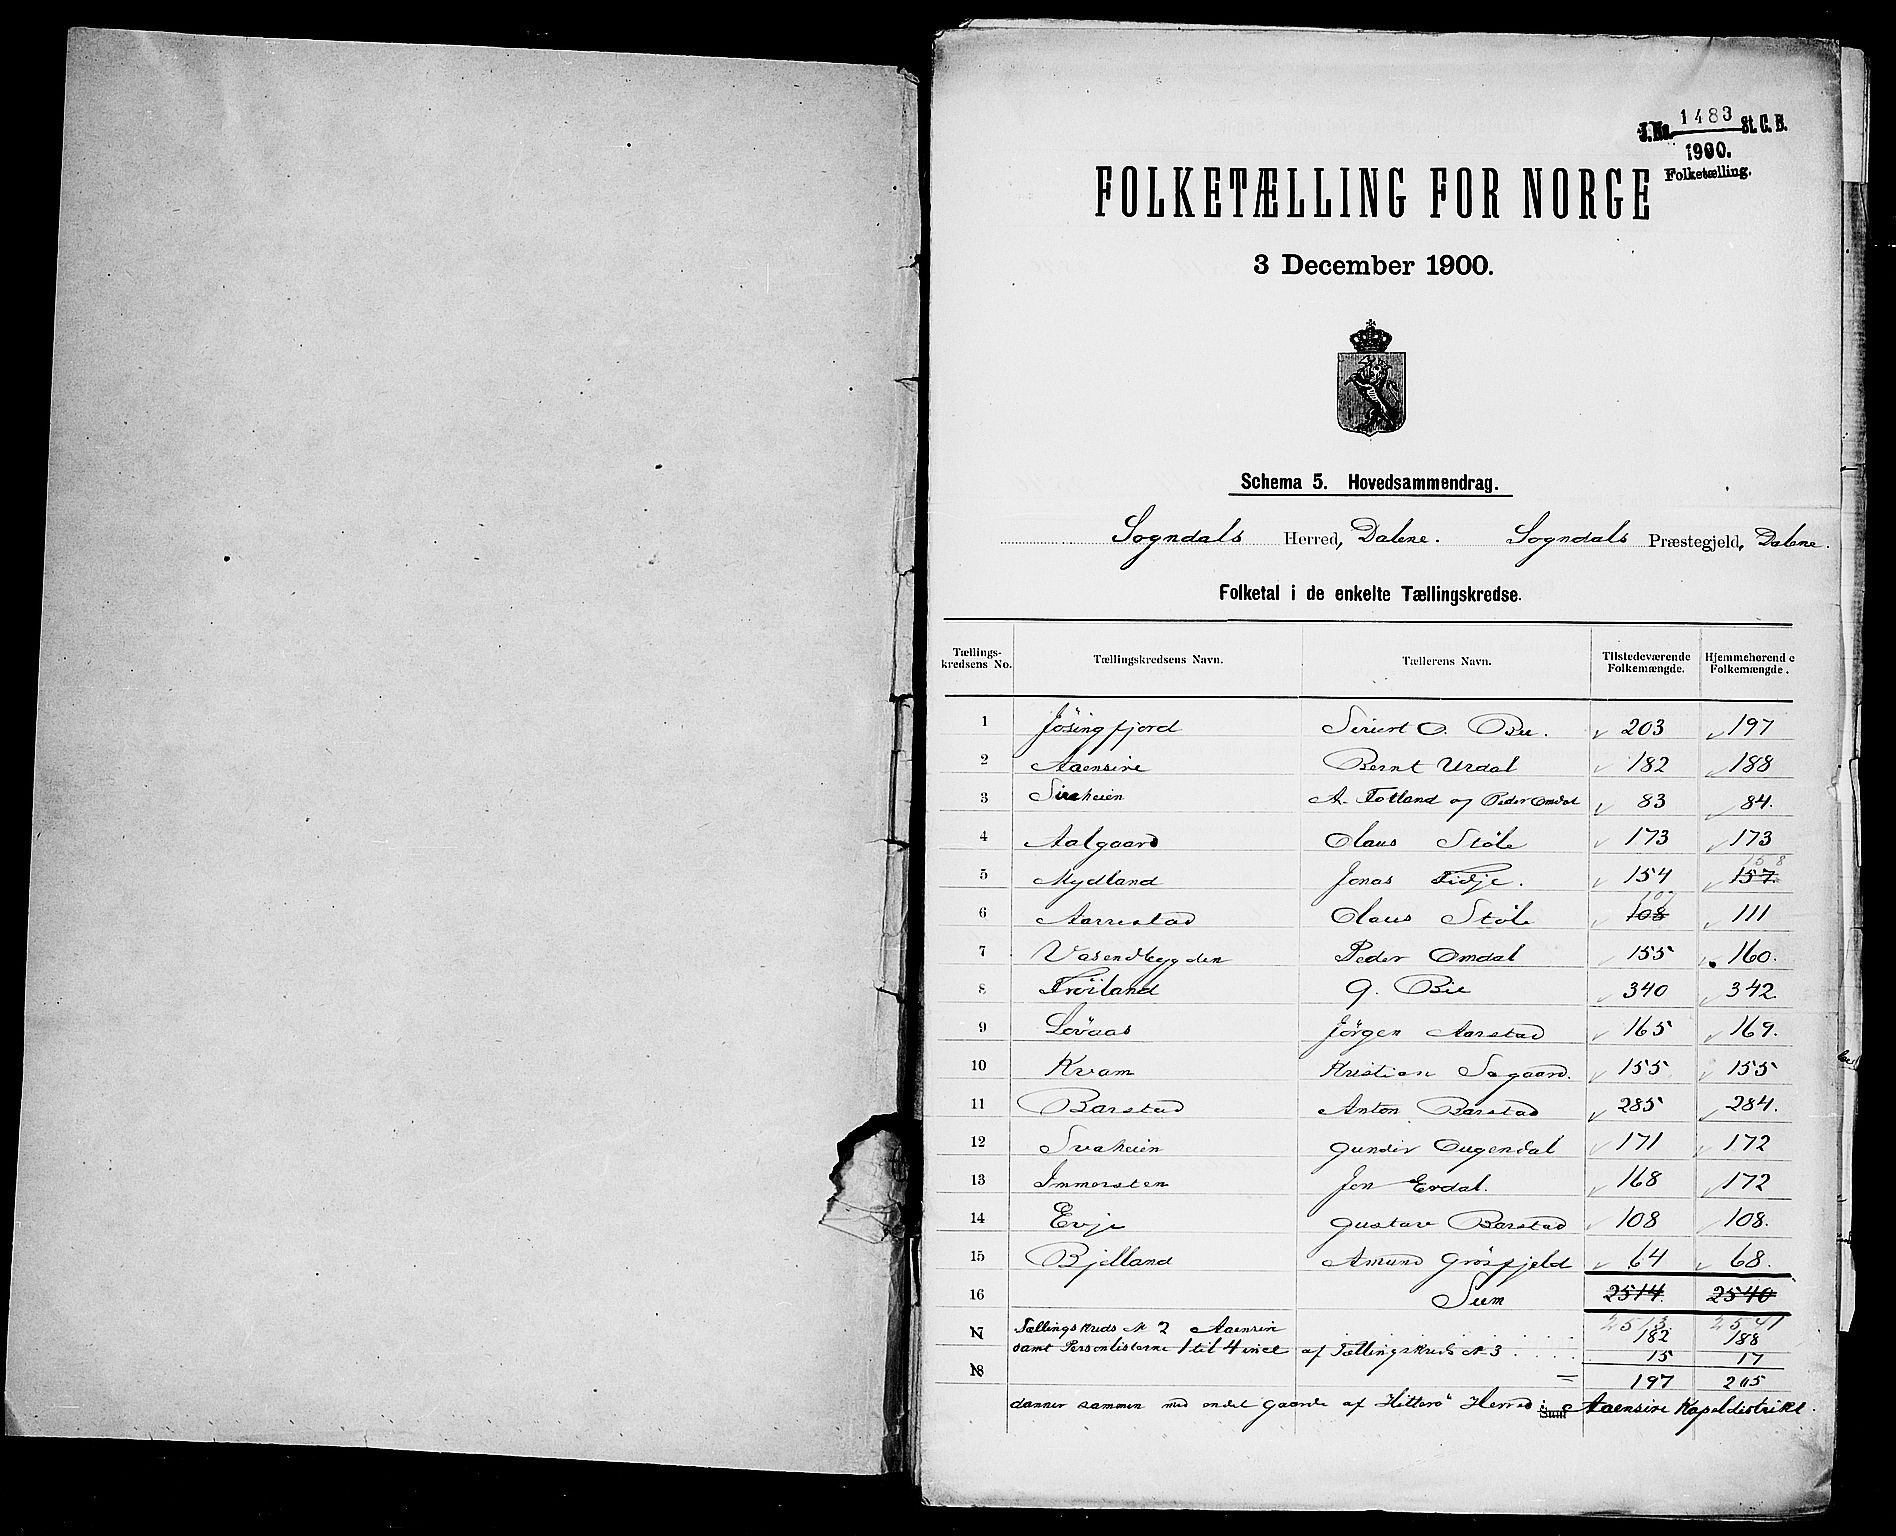 J.No. 1483 St. C. B.
1900.
Folketælling.
FOLKETÆLLING FOR NORGE
3 December 1900.
Schema 5. Hovedsammendrag.
Sogndals Herred, Dalene. Sogndals Præstegjeld, Dalene.
Folketal i de enkelte Tællingskredse.
Tællings-kredsens No. Tællingskredsens Navn. Tællerens Navn. Tilstedeværende Folkemængde. Hjemmehørende Folkemængde.
1 Jösingfjord Sivert O. Bie. 203 197
2 Aaensire Bernt Urdal 182 188
3 Siraheien A. Totland og Peder Omdal 83 84.
4 Aalgaard Olaus Stöle 173 173
158
5 Mydland Jonas Tidje. 154 157.
107
6 Aarrestad Olaus Stöle 108 111
7 Vasendbygden Peder Omdal 155 160.
8 Fröiland G. Bie 340 342
9 Lövaas Jörgen Aarstad 165 169.
10 Kvam Kristian Søgaard. 155 155
11 Barstad Anton Barstad 285 284.
12 Svaheien Gunder Ougendal 171 172
13 Immersten Jon Erdal. 168 172
14 Evje Gustav Barstad 108 108.
15 Bjelland Amund Grösfjeld 64 68.
16 Sum 2514 2540
2513 2541
17 Tællingskreds № 2 Aaensire 182 188
samt Personlisterne 1 til 4 incl af Tællingskreds № 3 . . . . 15 17
18 = 197 205
danner sammen med endel Gaarde af Hitterö Herred i Aaensire Kapeldistrikt.
Sum